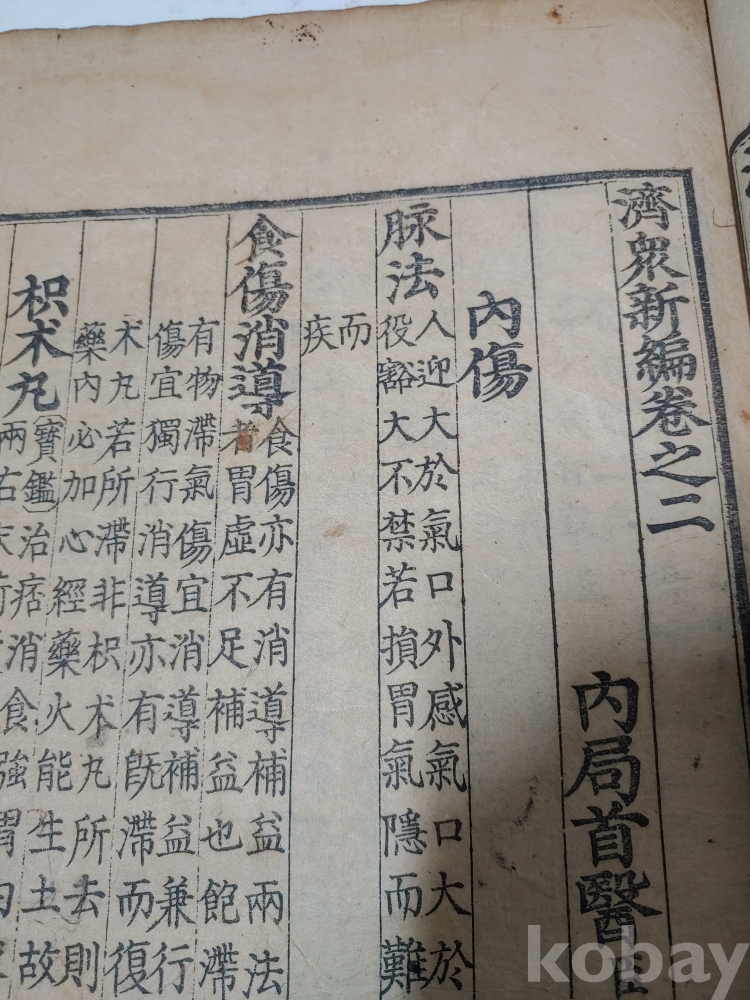 濟衆新編卷之二
內局首醫
內傷
脉法
人迎大於氣口外感氣口大於
役豁大不禁若損胃氣隱而難
而
疾
食傷消導
食傷亦有消導補益兩法
者胃虛不足補益也飽滯
有物滯氣傷宜消導補益兼行
傷宜獨行消導亦有旣滯而復
朮丸若所滯非枳朮丸所去則
藥內必加心經藥火能生土故
枳朮丸
寶鑑治痞消食強胃
兩右末
kobay